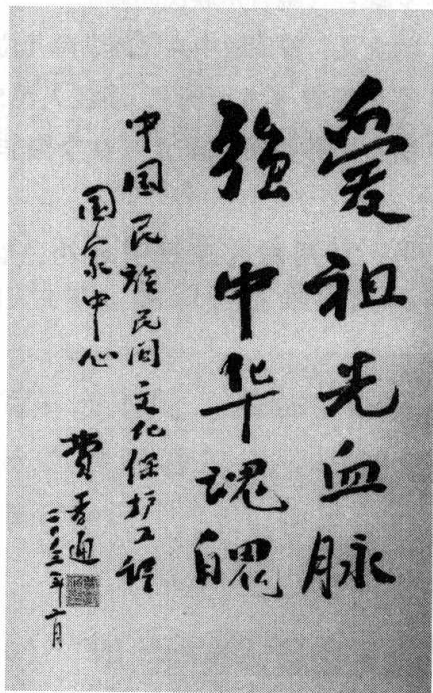 愛祖先血脉
強中华魂魄
中国民族民间文化保护工程
国家中心
費孝通
二〇〇三年